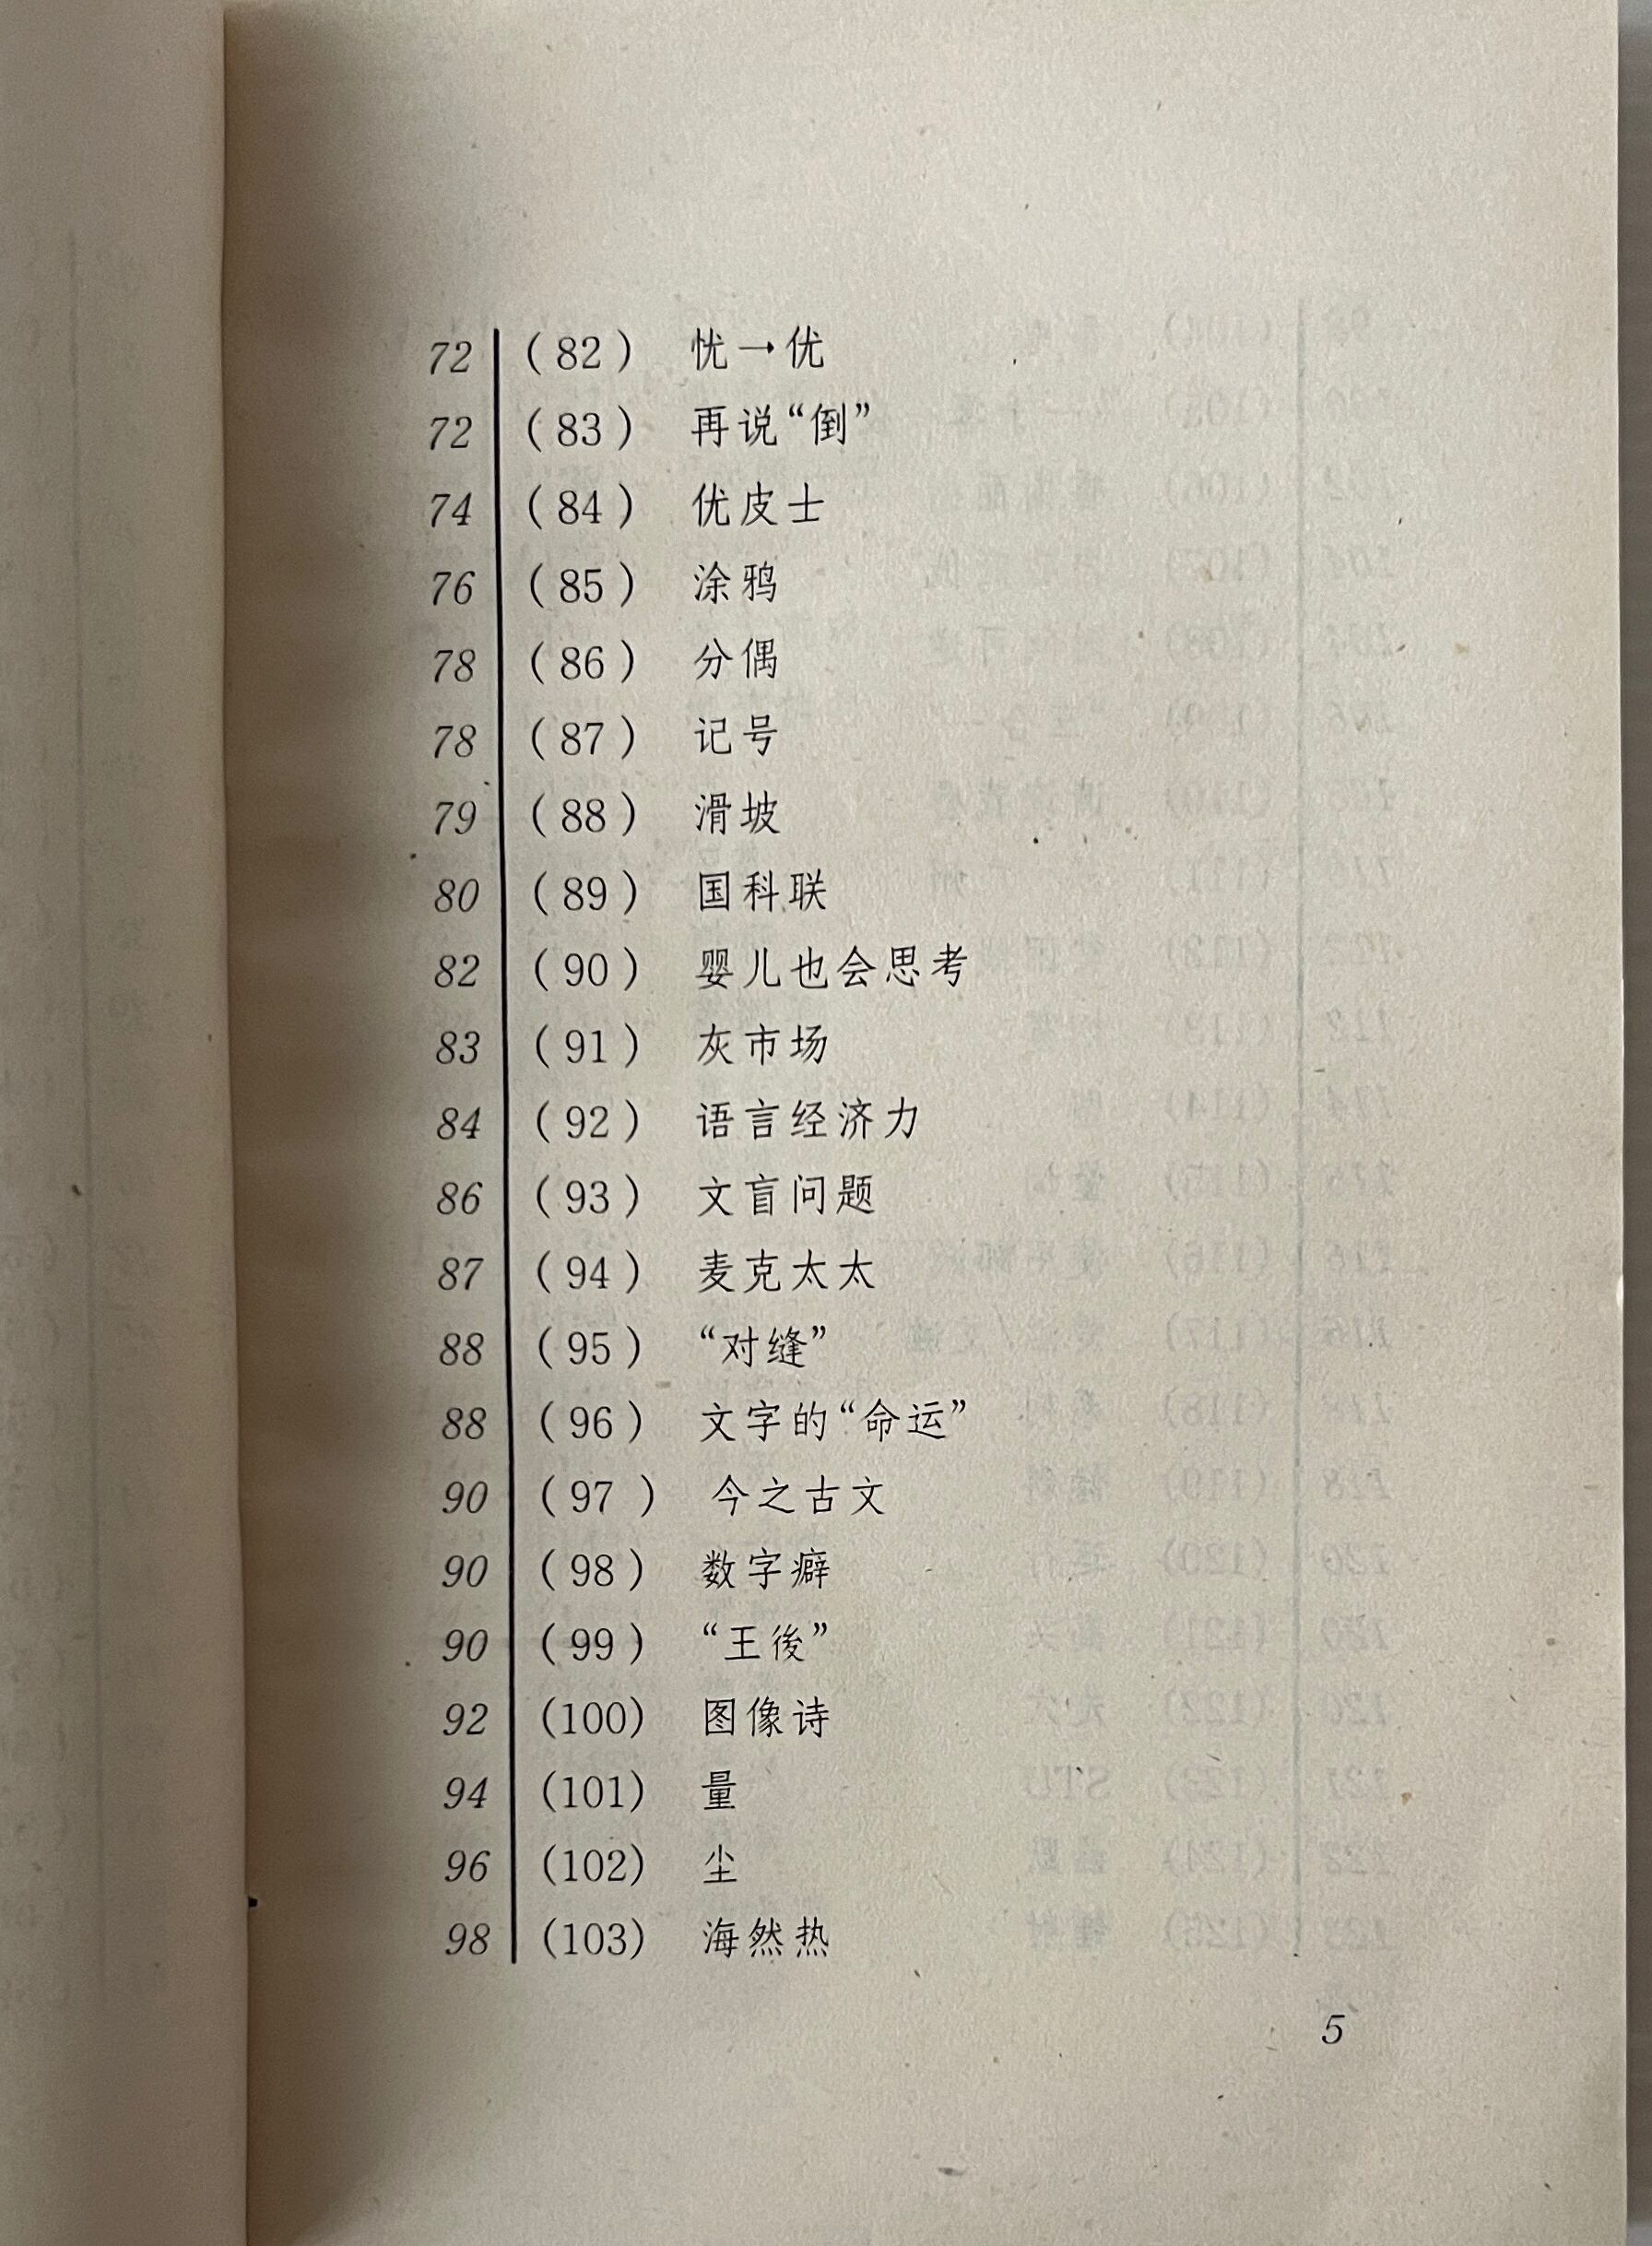 72 (82) 忧→优
72 (83) 再说“倒”
74 (84) 优皮士
76 (85) 涂鸦
78 (86) 分偶
78 (87) 记号
79 (88) 滑坡
80 (89) 国科联
82 (90) 婴儿也会思考
83 (91) 灰市场
84 (92) 语言经济力
86 (93) 文盲问题
87 (94) 麦克太太
88 (95) “对缝”
88 (96) 文字的“命运”
90 (97) 今之古文
90 (98) 数字癖
90 (99) “王後”
92 (100) 图像诗
94 (101) 量
96 (102) 尘
98 (103) 海然热
5